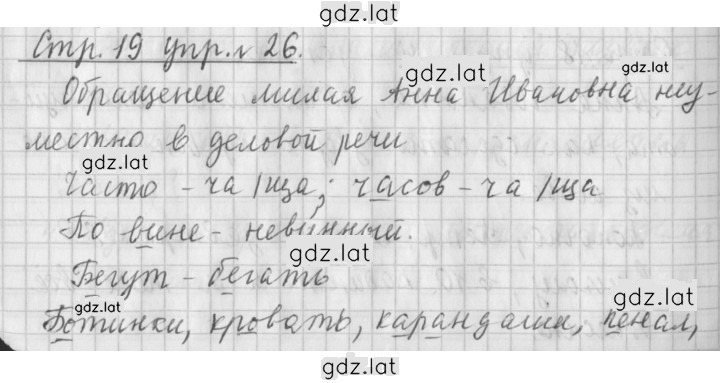 gdz.lat
Стр. 19 упр. № 26.
gdz.lat gdz.lat
Обращение милая Анна Ивановна неу-
местно в деловой речи
gdz.lat
Часто - ча/ща; часов - ча/ща
По вине - невинный.
gdz.lat
Бегут - бегать
gdz.lat gdz.lat
Ботинки, кровать, карандаши, пенал,
gdz.lat